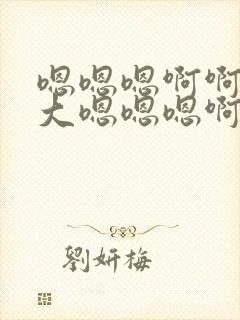 嗯嗯嗯啊啊
大嗯嗯嗯啊
劉妍梅